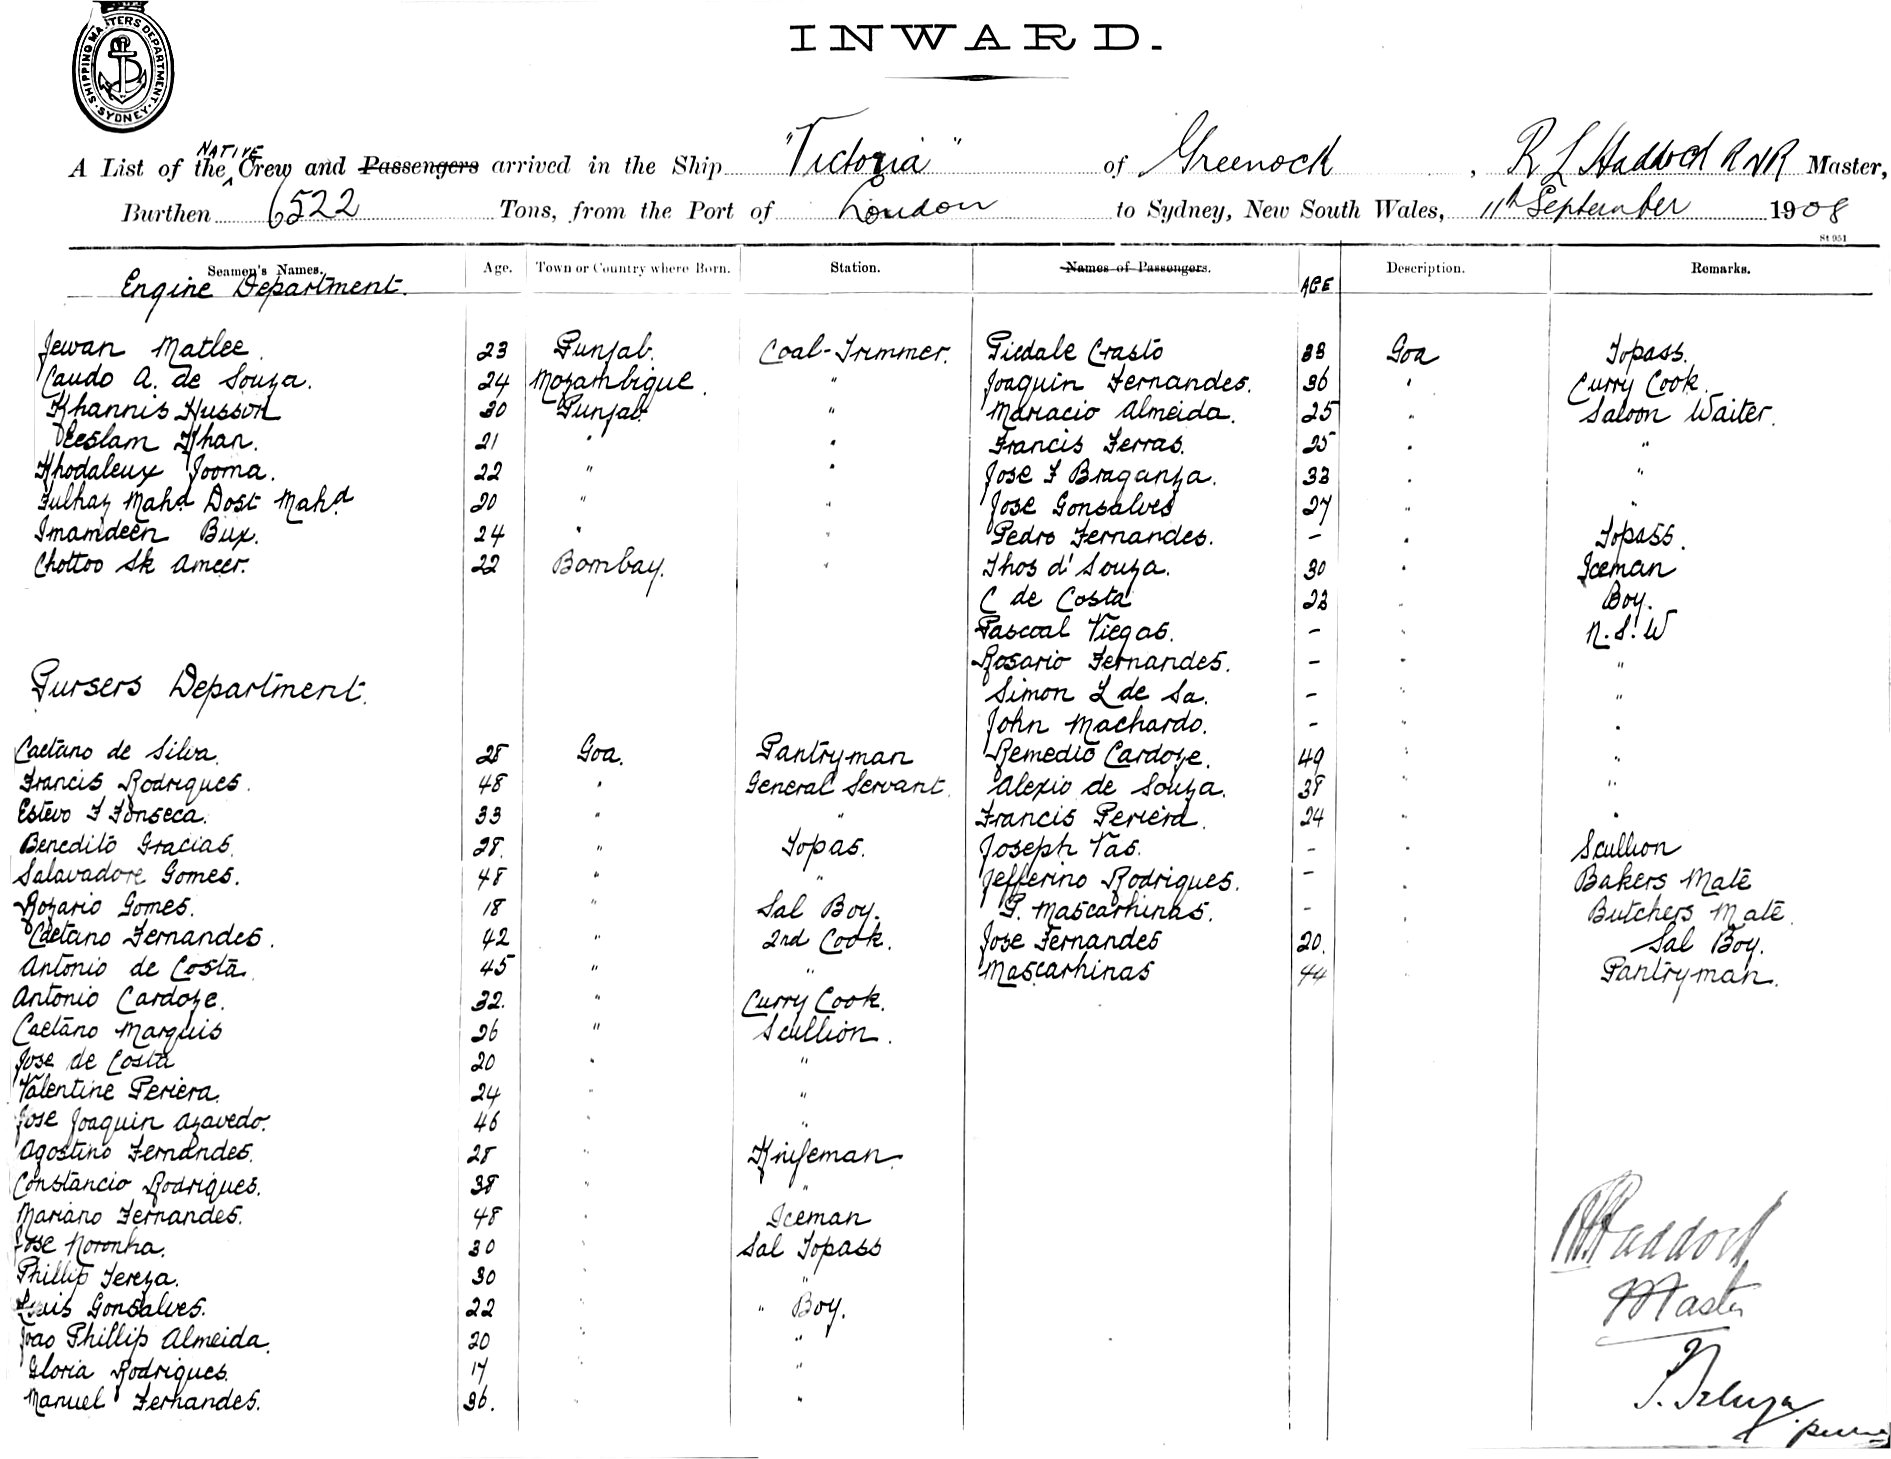 SHIPPING MASTERS DEPARTMENT. SYDNEY
INWARD.
A List of the NATIVE Crew and Passengers arrived in the Ship "Victoria" of Greenock, R L Haddock RNR Master,
Burthen 6522 Tons, from the Port of London to Sydney, New South Wales, 11th September 1908
St 951
Seamen's Names. Age. Town or Country where Born. Station. Names of Passengers. AGE Description. Remarks.
Engine Department.
Jewan Matlee. 23 Punjab. Coal-Trimmer. Piedale Crasto 33 Goa Topass.
Caudo A. de Souza. 24 Mozambique. " Joaquin Fernandes. 36 " Curry Cook.
Khannis Husson 30 Punjab. " Mariacio Almeida. 25 " Saloon Waiter.
Khan. 21 " " Francis Ferras. 25 " "
Khodaleux Jooma. 22 " " Jose F Braganza. 33 " "
Fulhaz Mahd Dost Mahd 20 " " Jose Gonsalves 27 " "
Imamdeen Bux. 24 " " Pedro Fernandes. - " Topass.
Chottoo Sk Ameer. 22 Bombay. " Thos d'Souza. 30 " Iceman
C de Costa 23 " Boy.
Pascoal Viegas. - " N.S.W
Rosario Fernandes. - " "
Pursers Department. Simon L de Sa. - " "
John Machardo. - " "
Caetano de Silva. 28 Goa. Pantryman Remedio Cardoze. 49 " "
Francis Rodrigues. 48 " General Servant. Alexio de Souza. 38 " "
Estevo F Fonseca. 33 " " Francis Periera. 24 "
Benedito Gracias. 28. " Topas. Joseph Vas. - " Scullion
Salavadore Gomes. 48 " " Jefferino Rodrigues. - Bakers Mate
Rozario Gomes. 18 " Sal Boy. P. Mascarhinas. - " Butchers Mate.
Caetano Fernandes. 42 " 2nd Cook. Jose Fernandes 20. " Sal Boy.
Antonio de Costa. 45 " " Mascarhinas 44 " Pantryman.
Antonio Cardoze. 32. " Curry Cook.
Caetano Marquis 26 " Scullion.
Jose de Costa 20 " "
Valentine Periera. 24 " "
Jose Joaquin Azavedo. 46 " "
Agostino Fernandes. 28 " Knifeman.
Constancio Rodrigues. 38 " "
Mariano Fernandes. 48 " Iceman
Jose Noronha. 30 " Sal Topass
Phillip Tereza. 30 " "
Luis Gonsalves. 22 " " Boy.
Joao Phillip Almeida. 20 " "
Gloria Rodrigues. 17 " "
Manuel Fernandes. 36. " "
Haddock
Master